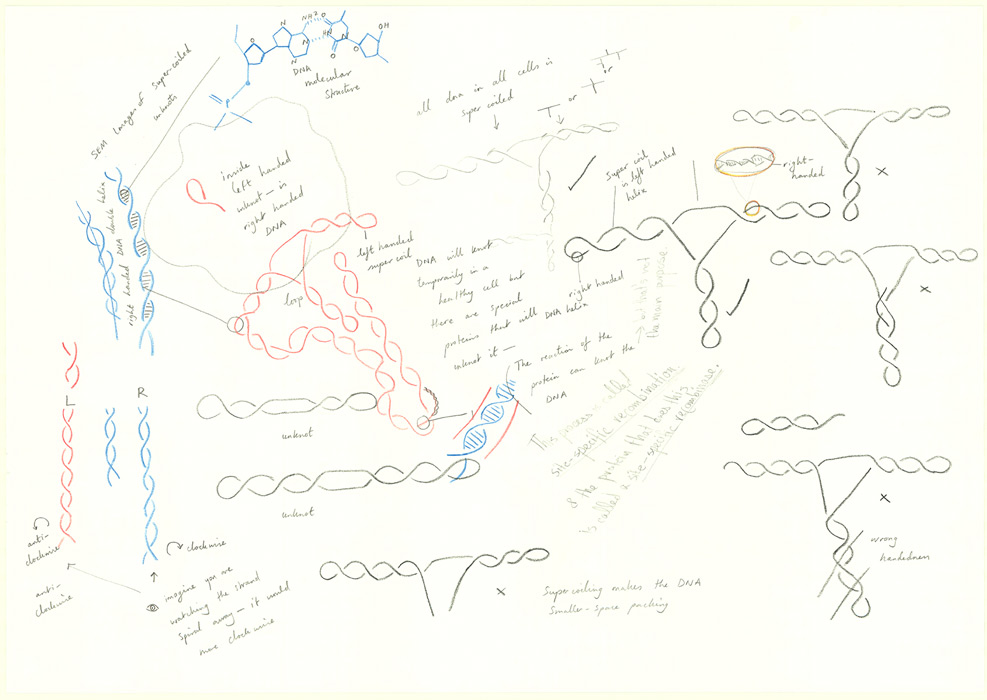 SEM Images of Super-coiled
unknots
NH2
O
OH
N
N
N
N
HN
N
O
O
O
O
P
DNA
molecular
Structure
all dna in all cells is
super coiled
or
or
inside
left handed
unknot - in
right handed
DNA
right handed DNA double helix
left handed
super coil
loop
Super coil
in left handed
helix
right-
handed
DNA will knot
temporarily in a
healthy cell but
there are special
proteins that will
unknot it —
right handed
DNA helix
The reaction of the
protein can knot the
DNA
the main purpose
This process is called
site-specific recombination
& the protein that does this
is called a site-specific recombinase.
L
R
unknot
unknot
anti-
clockwise
anti-
clockwise
clockwise
imagine you are
watching the strand
spiral away - it would
move clockwise
Supercoiling makes the DNA
Smaller - space packing
wrong
handedness